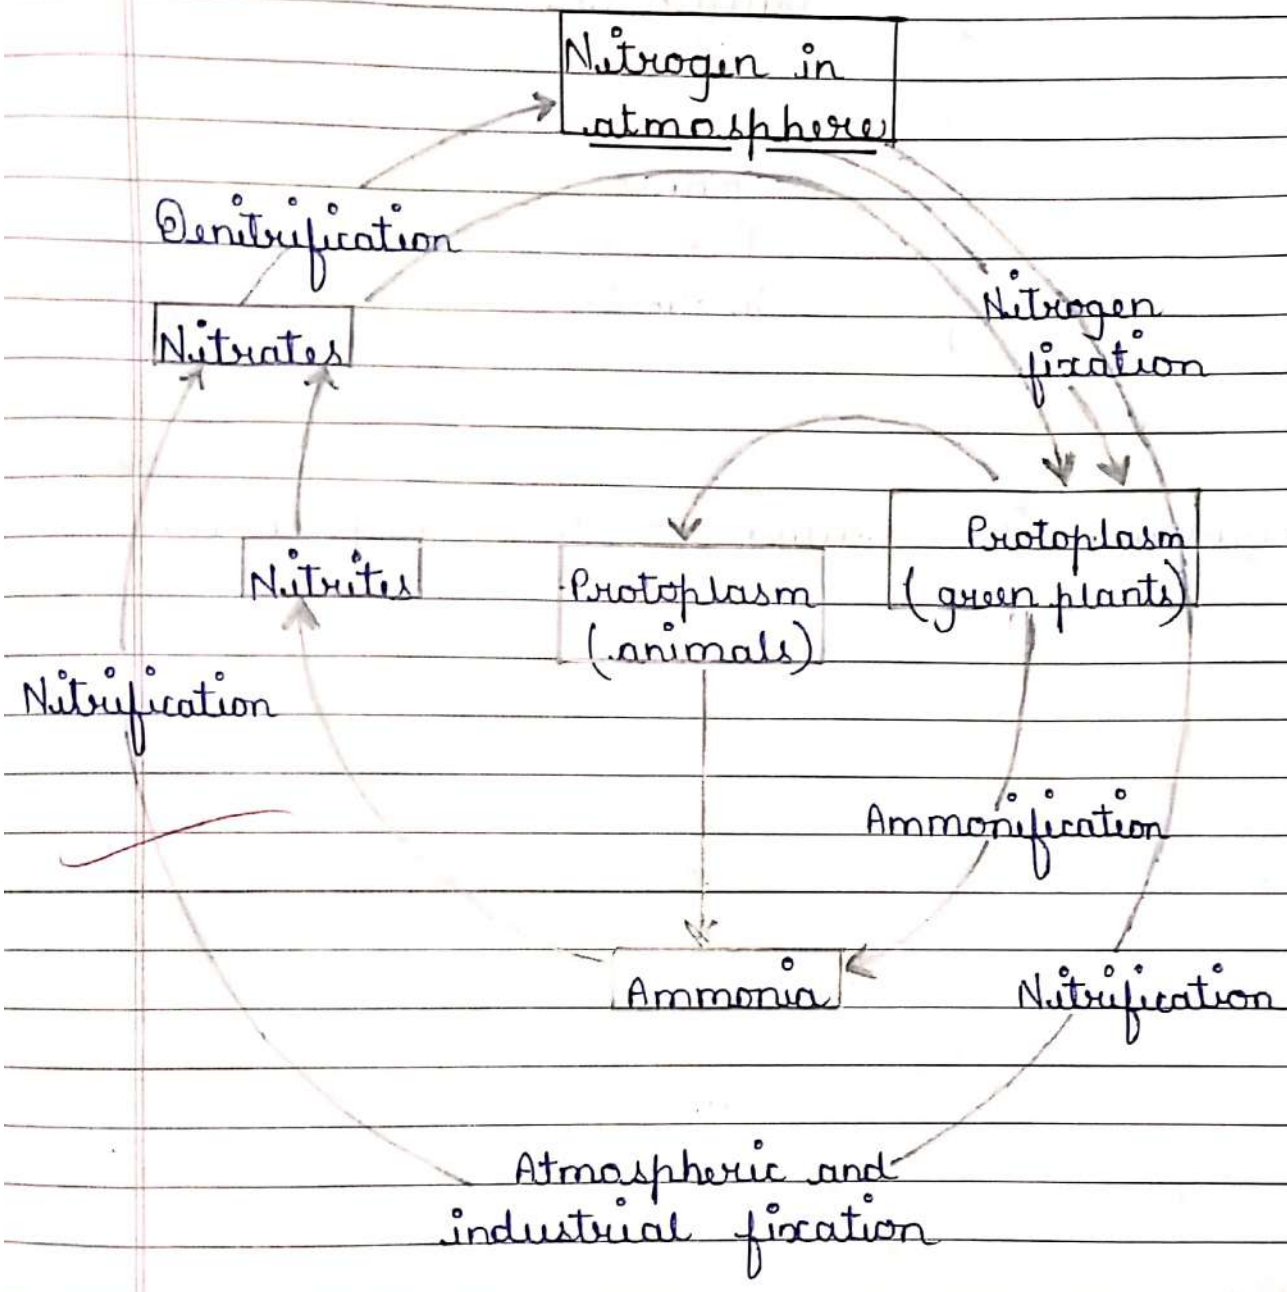 Nitrogen in
atmosphere
Denitrification
Nitrates
Nitrogen
fixation
Nitrites
Protoplasm
(animals)
Protoplasm
(green plants)
Nitrification
Ammonification
Ammonia
Nitrification
Atmospheric and
industrial fixation